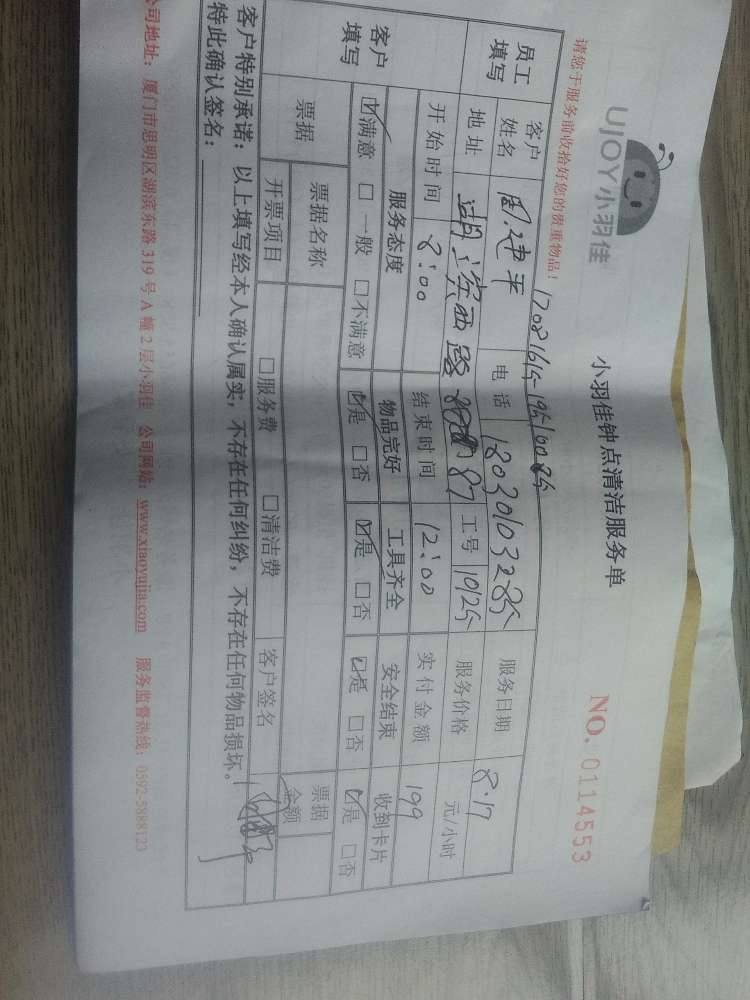 UJOY小羽佳
小羽佳钟点清洁服务单
NO. 0114553
请您于服务前收拾好您的贵重物品！
员工填写 客户姓名 周建平 电话 18030103285 服务日期 8.17
地址 湖滨西路 87 工号 1025 服务价格 元/小时
开始时间 8:00 结束时间 12:00 实付金额 199
客户填写 服务态度 物品完好 工具齐全 安全结束 收到卡片
☑满意 □一般 □不满意 ☑是 □否 ☑是 □否 ☑是 □否 ☑是 □否
票据 票据名称 □服务费 □清洁费 票据金额
开票项目 客户签名
客户特别承诺：以上填写经本人确认属实，不存在任何纠纷，不存在任何物品损坏。
特此确认签名：
公司地址：厦门市思明区湖滨东路319号A幢2层小羽佳 公司网站：www.xiaoyujia.com 服务监督热线：0592-5888123